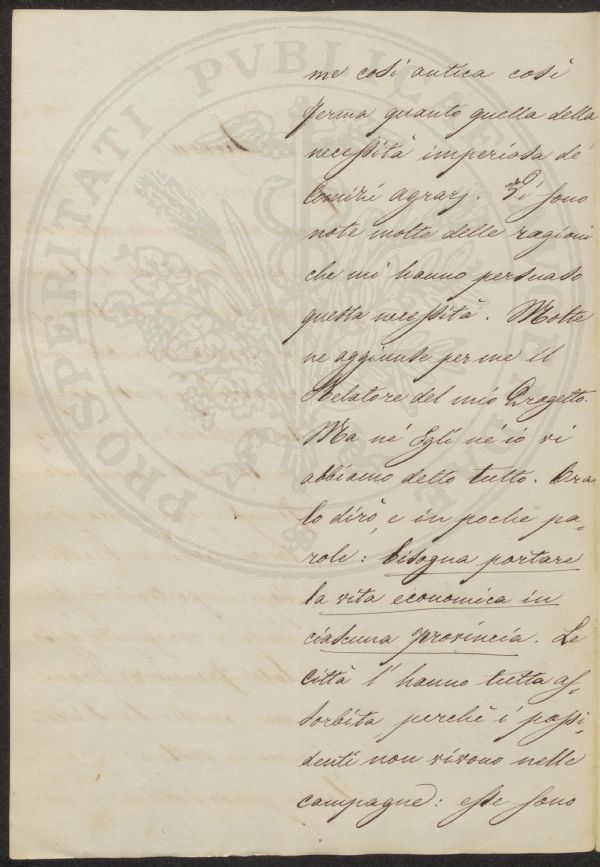 me così antica così
ferma quanto quella della
necessità imperiosa de'
Comizi agrarj. Vi sono
note molte delle ragioni
che mi hanno persuaso
questa necessità. Molte
ne aggiunse per me il
Relatore del mio Progetto.
Ma né Egli né io vi
abbiamo detto tutto. Ora
lo dirò, e in poche pa-
role: bisogna portare
la vita economica in
ciascuna provincia. Le
Città l'hanno tutta as-
sorbita perchè i possi-
denti non vivono nelle
campagne: esse sono
PROSPERITATI PVBLICAE